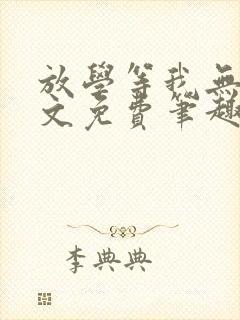 放學等我無
文免費筆趣
李典典